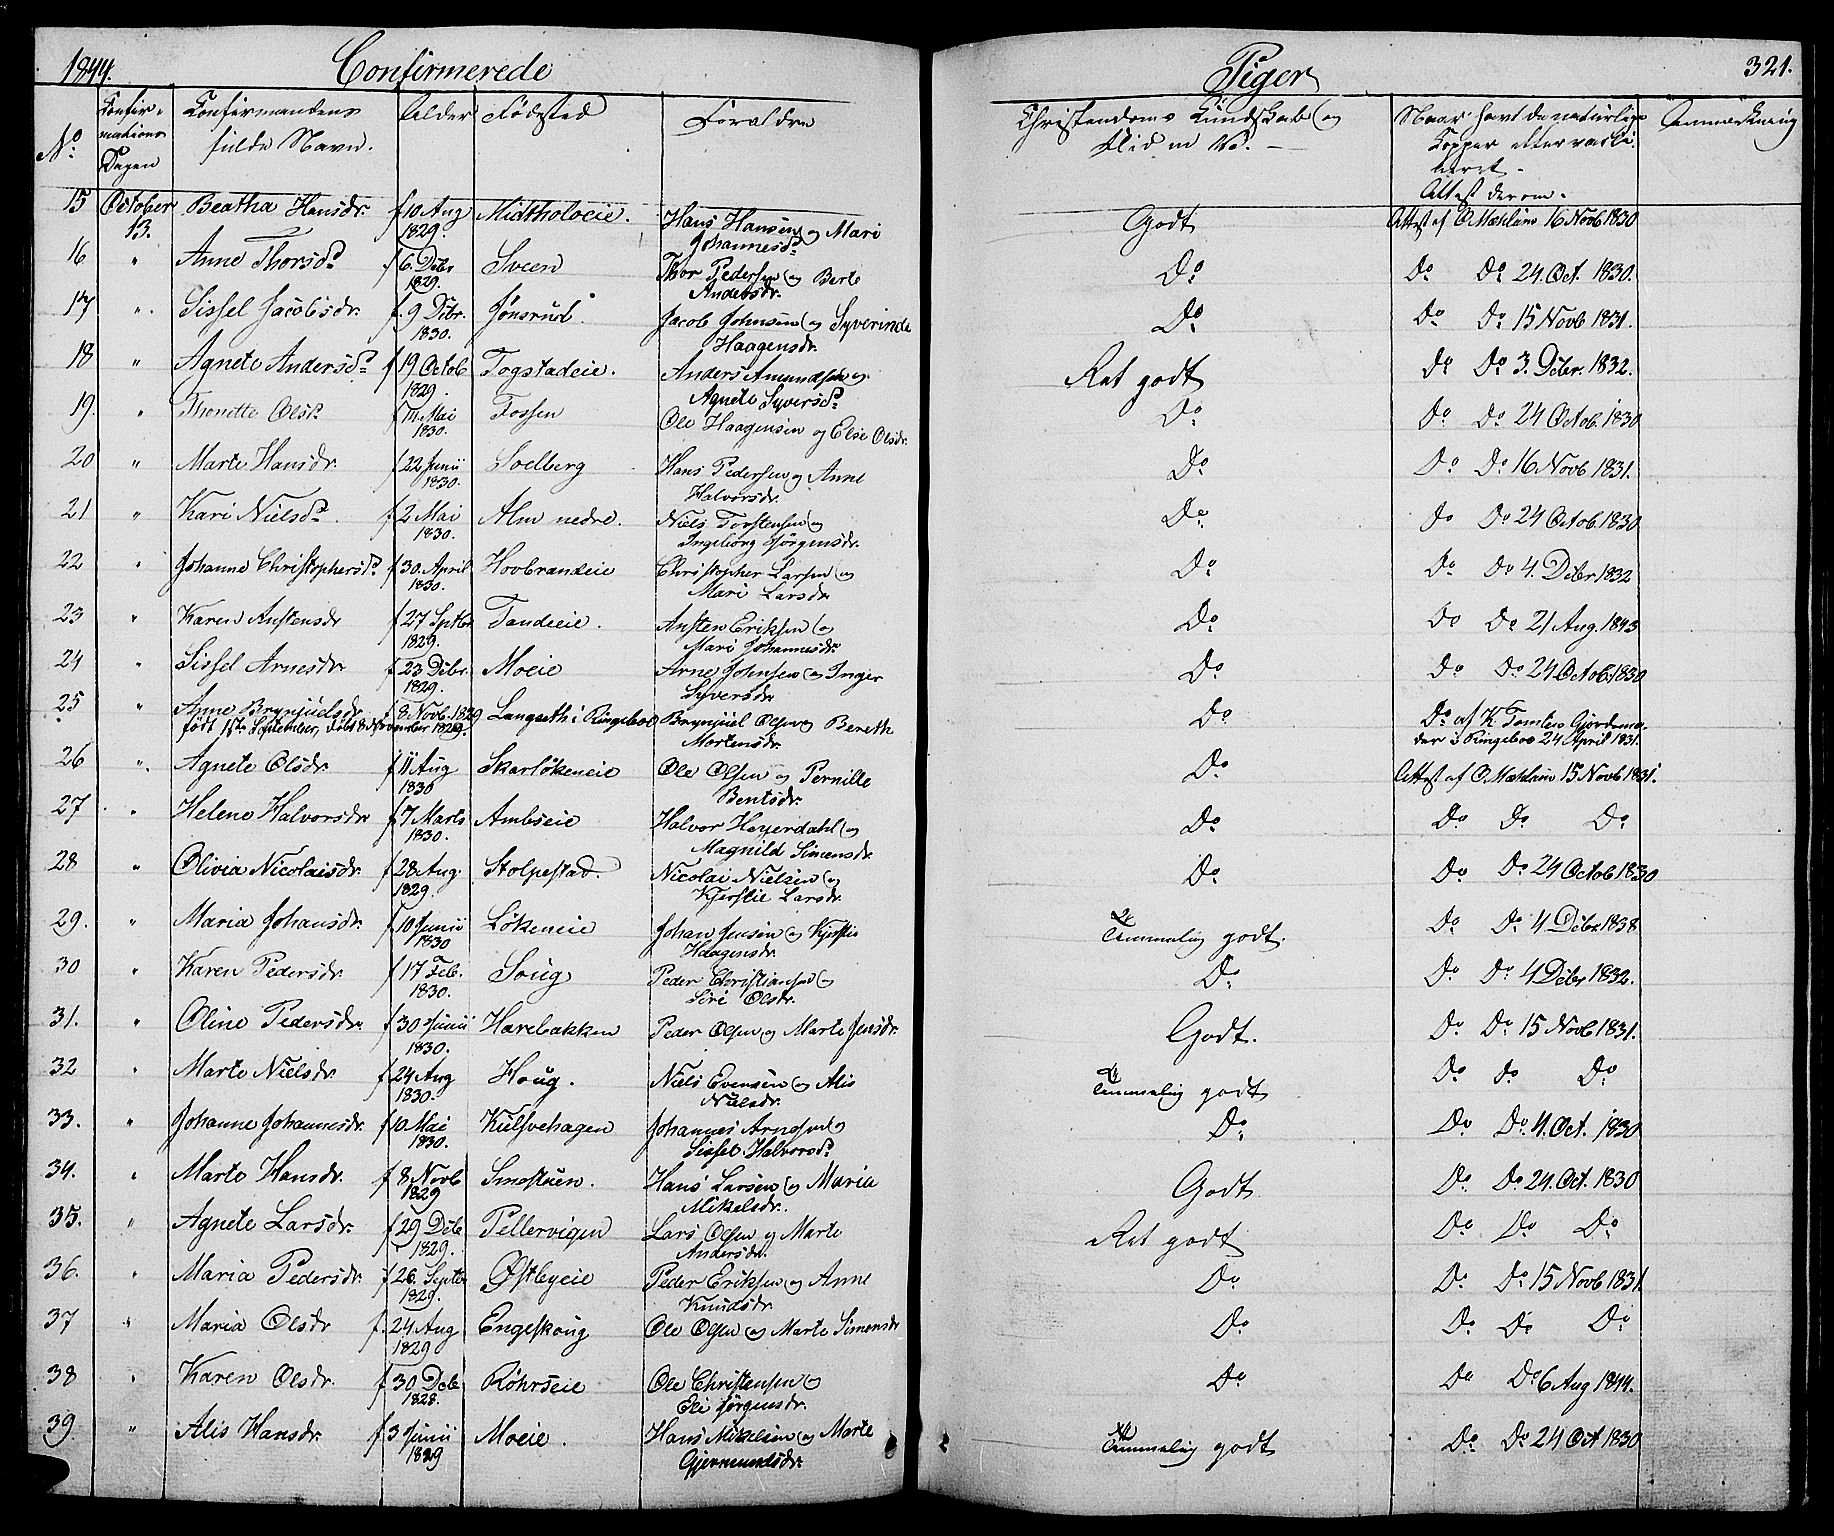 1844. Confirmerede
Piger 321.
No. Confirmations Dagen Confirmandens fulde Navn. Alder Fødested Forældre Christendoms Kundskab og Flid m. V. Naar havt de naturlige Kopper eller vaccineret. Attest derom. Anmærkning
15 October 13. Beatha Hansdr. f 10 Aug 1829 Midtholoeie. Hans Hansen og Mari Johannesdr. Godt Attest af O. Mæhlum 16 Novb 1830
16 " Anne Thorsdr. f 6 Debr 1829. Sveen Thor Pedersen og Berte Andersdr. Do Do Do 24 Oct. 1830.
17 " Sissel Jacobsdr. f. 9 Debr. 1830. Jønsrud. Jacob Johnsen og Syverinde Haagensdr. Do Do Do 15 Novb 1831.
18 " Agnete Andersdr. f 19 Octob 1829. Togstadeie. Anders Amundsen og Agnete Syversdr. Ret godt Do Do 3. Debr. 1832.
19. " Thonette Olsdr. f Mai 1830. Fossen Ole Haagensen og Else Olsdr. Do Do Do 24 Octob. 1830
20 " Marte Hansdr. f 22 Junii 1830. Soelberg Hans Pedersen og Anne Halvorsdr. Do Do Do 16 Novb 1831.
21 " Kari Nielsdr. f. 2 Mai 1830. Alm nedre. Niels Torstensen og Ingeborg Jørgensdr. Do Do Do 24 Octob. 1830
22 " Johanne Christophersdr. f 30. April 1830. Hovbrandeie Christopher Larsen og Mari Larsdr. Do Do Do 4. Debr 1832
23 " Karen Anstensdr f 27 Septbr 1829. Tandeeie. Ansten Eriksen og Mari Johannesdr. Do Do Do 21 Aug. 1843
24 " Sissel Arnesdr. f 23 Debr. 1829. Moeie Arne Johnsen og Inger Syversdr. Do Do Do 24 Octob. 1830
25 " Anne Brynjulsdr. f 8 Novb. 1829 Langseth i Ringeboe Brynjul Olsen og Bereth Mortensdr. Do Do af K Tomlen Gjordemoder i Ringeboe 24 April 1831.
født 15de September, døbt 8 November 1829.
26 " Agnete Olsdr. f 11 Aug 1830 Skarløkeneie Ole Olsen og Pernille Bentsdr. Do Attest af O. Mæhlum 15 Novb 1831.
27 " Helene Halvorsdr f 7 Marts 1830. Ambseie Halvor Heyerdahl og Magnild Simensdr. Do Do Do Do
28 " Olivia Nicolaisdr. f 28 Aug. 1829. Stolpestad. Nicolai Nielsen og Kjerstie Larsdr. Do Do Do 24 Octob 1830
29. " Maria Johansdr. f 10 Junii 1830 Løkeneie Johan Jensen og Kjersti Haagensdr. Temmelig godt. Do Do 4 Debr 1838
30 " Karen Pedersdr. f 17 Feb. 1830. Soug Peder Christiansen og Siri Olsdr. Do Do Do 4 Debr 1832.
31. " Oline Pedersdr. f 30 Junii 1830. Harebakken Peder Olsen og Marte Jensdr. Godt. Do Do 15 Novb 1831.
32 " Marte Nielsdr. f 24 Aug 1830. Houg. Niels Evensen og Alis Nielsdr. Temmelig godt Do Do Do
33. " Johanne Johannesdr. f 10 Mai 1830. Kulsvehagen Johannes Arnesen og Sissel Halvorsdr. Do Do Do 4. Oct. 1830
34. " Marte Hansdr. f 8 Novb 1829 Smestuen. Hans Larsen og Maria Mikelsdr. Godt Do Do 24. Oct. 1830
35. " Agnete Larsdr. f 29 Debr 1829. Pellervigen Lars Olsen og Marte Andersdr. Ret godt Do Do Do
36. " Maria Pedersdr. f 26. Septbr 1829. Østbyeie Peder Eriksen og Anne Knudsdr. Do Do Do 15 Novb 1831.
37 " Maria Olsdr f. 24 Aug 1829 Engeskoug Ole Olsen og Marte Simensdr Do Do Do Do
38 " Karen Olsdr. f 30 Deb 1828. Røhrseie Ole Christensen og Eli Jørgensdr. Do Do Do 6 Aug 1844.
39 " Alis Hansdr. f 3 Junii 1829 Moeie. Hans Mikelsen og Marte Gjermundsdr. Temmelig godt Do Do 24 Oct 1830